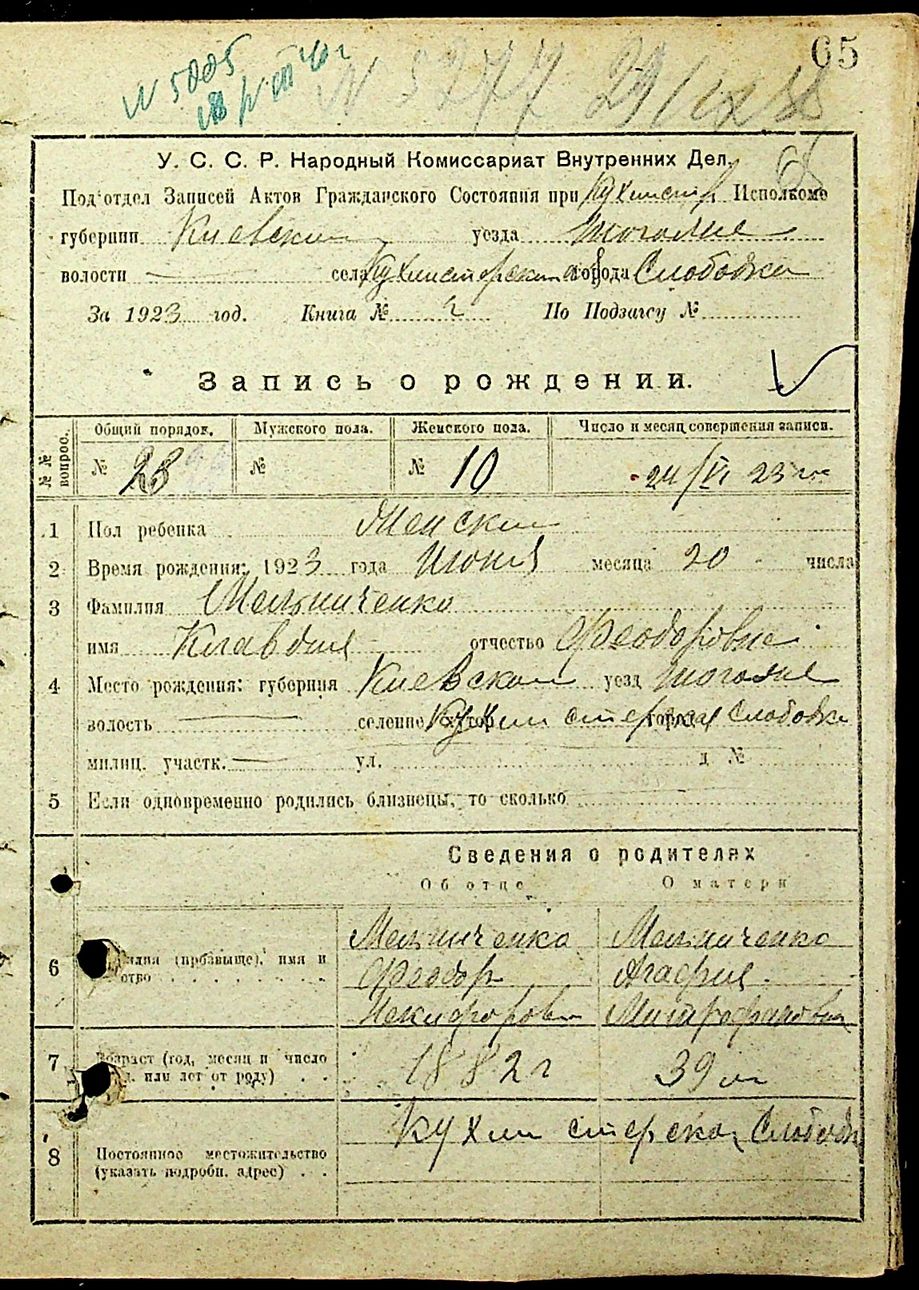 65
N 5005
N 5277 29/IX
У. С. С. Р. Народный Комиссариат Внутренних Дел.
Под'отдел Записей Актов Гражданского Состояния при Кухмистр Исполкоме
губернии Киевской уезда тоголие
волости — села Кухмистерская города Слободка
За 1923 год. Книга № 2 По Подзагсу №
Запись о рождении.
№№ вопрос. Общий порядок. Мужского пола. Женского пола. Число и месяц совершения записи.
№ 28 № № 10 24/VI 23 г.
1 Пол ребенка Женский
2 Время рождения: 1923 года Июня месяца 20 числа
3 Фамилия Мельниченко
имя Клавдия отчество Феодоровна
4 Место рождения: губерния Киевской уезд тоголие
волость — селение, хутор Кухмистерская города Слободка
милиц. участк. — ул. д №
5 Если одновременно родились близнецы, то сколько
Сведения о родителях
Об отце О матери
6 (прозвище), имя и Мельниченко Мельниченко
Феодор Агафия
Некифоров Митрофановна
7 Возраст (год, месяц и число 1882 г 39 л
или лет от роду)
8 Постоянное местожительство Кухмистерская Слободка
(указать подробн. адрес)